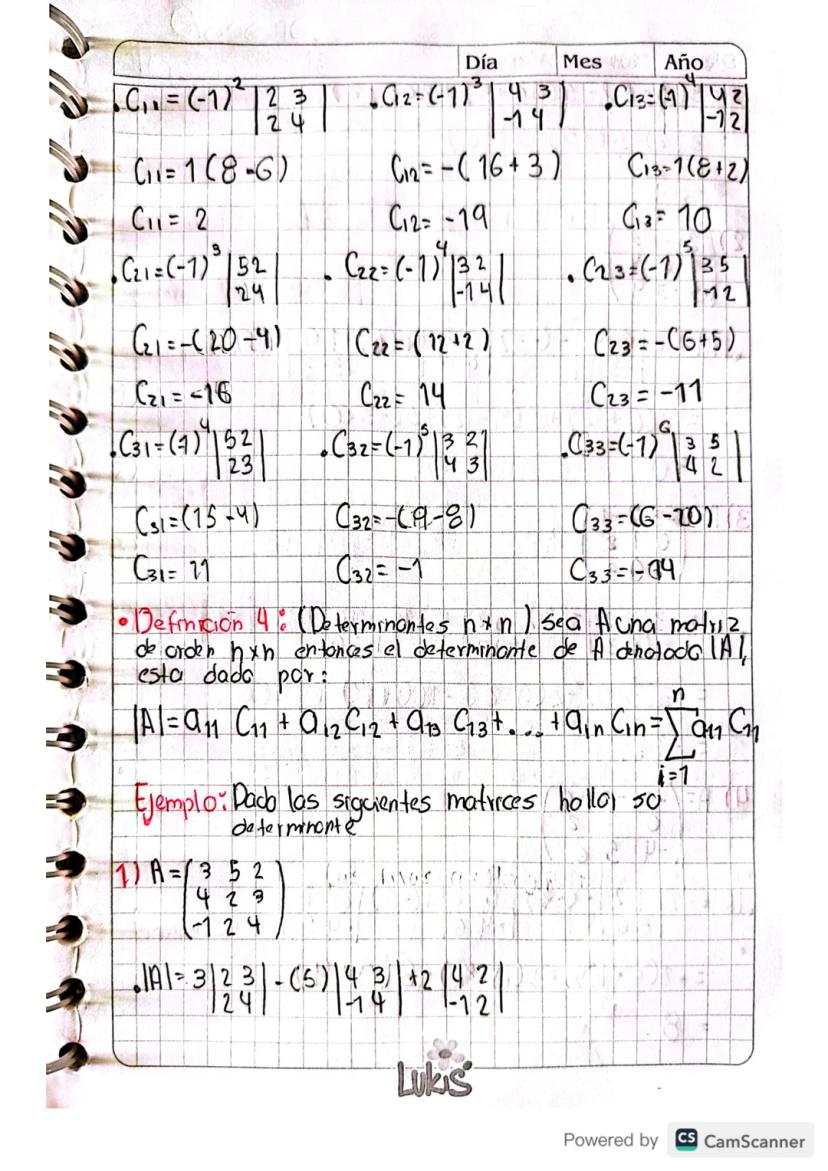 Día Mes Año
.C11 = (-1)^2 |2 3| .C12=(-1)^3 |4 3| .C13=(-1)^4 |4 2|
|2 4| |-1 4| |-1 2|
C11= 1(8-6) C12= -(16+3) C13=1(8+2)
C11= 2 C12= -19 C13= 10
.C21=(-1)^3 |5 2| . C22=(-1)^4 |3 2| . C23=(-1)^5 |3 5|
|2 4| |-1 4| |-1 2|
C21=-(20-4) C22=(12+2) C23=-(6+5)
C21=-16 C22= 14 C23= -11
.C31=(-1)^4 |5 2| .C32=(-1)^5 |3 2| .C33=(-1)^6 |3 5|
|2 3| |4 3| |4 2|
C31=(15-4) C32=-(9-8) C33=(6-20)
C31= 11 C32= -1 C33=-14
• Definición 4: (Determinantes n×n) sea A una matriz
de orden n×n entonces el determinante de A denotado |A|,
esta dado por:
n
|A|=a11 C11 + a12 C12 + a13 C13+... +a1n C1n=∑ a11 C11
i=1
Ejemplo: Dado las siguientes matrices hallar su
determinante
1) A=(3 5 2
4 2 3
-1 2 4)
.|A|= 3|2 3| -(5)|4 3| +2|4 2|
|2 4| |-1 4| |-1 2|
LUKIS
Powered by CS CamScanner